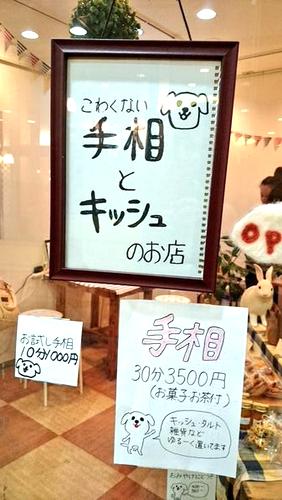 こわくない
手相
と
キッシュ
のお店
OP
お試し手相
10分1000円
手相
30分3500円
(お菓子お茶付)
キッシュ・タルト
雑貨など
ゆる〜く置いてます